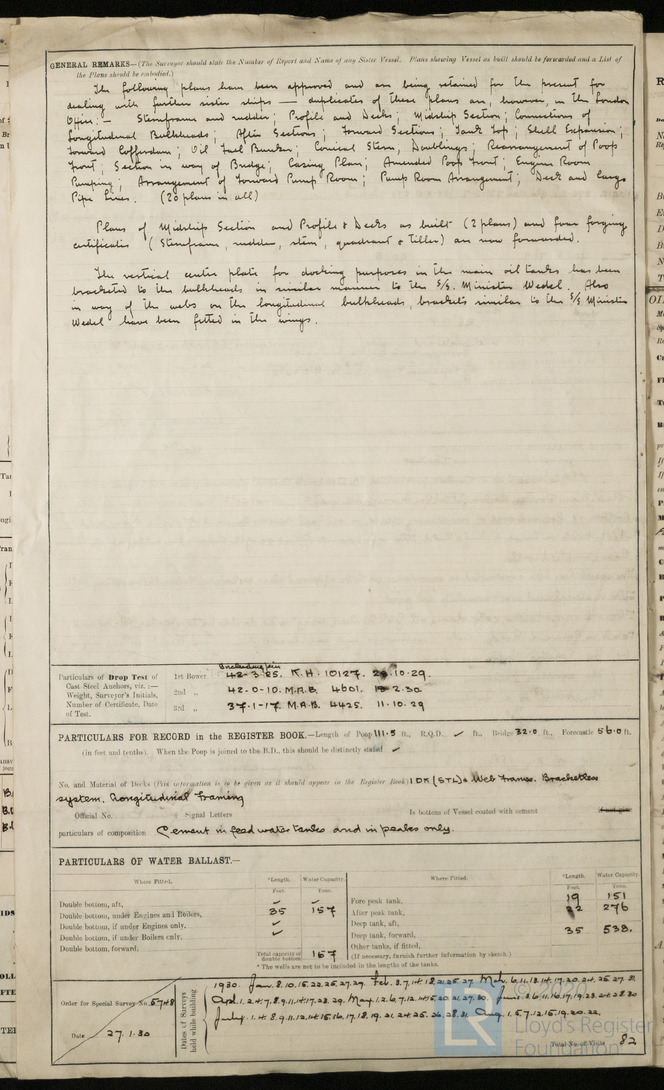 GENERAL REMARKS—(The Surveyor should state the Number of Report and Name of any Sister Vessel. Plans showing Vessel as built should be forwarded and a List of
the Plans should be embodied.)
The following plans have been approved and are being retained for the present for
dealing with further sister ships — duplicates of these plans are, however, in the London
Office:— Sternframe and rudder; Profile and Decks; Midship Section; Connections of
Longitudinal Bulkheads; After Sections; Forward Sections; Tank Top; Shell Expansion;
Forward Cofferdam; Oil Fuel Bunker; Conical Stern, Doublings; Rearrangement of Poop
Front; Section in way of Bridge; Casing Plan; Amended Poop Front; Engine Room
Pumping; Arrangement of Forward Pump Room; Pump Room Arrangement; Deck and Cargo
Pipe Lines. (20 plans in all)
Plans of Midship Section and Profile & Decks as built (2 plans) and four forging
certificates (Sternframe, rudder, stem, quadrant & tiller) are now forwarded.
The vertical center plate for docking purposes in the main oil tanks has been
bracketed to the bulkheads in similar manner to the S/S. Minister Wedel. Also
in way of the webs on the longitudinal bulkheads, brackets similar to the S/S Minister
Wedel have been fitted in the wings.
Particulars of Drop Test of
Cast Steel Anchors, viz.:—
Weight, Surveyor's Initials,
Number of Certificate, Date
of Test.
Including pin
1st Bower 42-3-25. K.H. 10127. 10.29.
2nd „ 42.0-10. M.A.B. 4601. 2.30
3rd „ 37-1-17. M.A.B. 4425. 11.10.29
PARTICULARS FOR RECORD in the REGISTER BOOK.—Length of Poop 111.5 ft., R.Q.D. ✓ ft., Bridge 32.0 ft., Forecastle 56.0 ft.
(in feet and tenths). When the Poop is joined to the B.D., this should be distinctly stated ✓
No. and Material of Decks (this information is to be given as it should appear in the Register Book) 1 DK (STL) & Web Frames. Bracketless
system. Longitudinal Framing
Official No. Signal Letters Is bottom of Vessel coated with cement
particulars of composition Cement in feed water tanks and in peaks only.
PARTICULARS OF WATER BALLAST.—
Where Fitted. *Length. Water Capacity. Where Fitted. *Length. Water Capacity.
Feet. Tons. Feet. Tons.
Double bottom, aft, Fore peak tank, 19 151
Double bottom, under Engines and Boilers, 35 157 After peak tank, 22 276
Double bottom, if under Engines only, Deep tank, aft,
Double bottom, if under Boilers only, Deep tank, forward, 35 538.
Double bottom, forward, Other tanks, if fitted,
Total capacity of double bottom 157 (If necessary, furnish further information by sketch.)
* The wells are not to be included in the lengths of the tanks.
Order for Special Survey No. 5748
Date 27.1.30
Dates of Surveys held while building
1930. Jan. 8.10.15.22.25.27.29. Feb. 3.7.14.18.21.25.27. Mch. 6.11.13.14.17.20.24.25.27.31.
Apl. 1.2.4.7.8.9.11.14.17.28.29. May. 1.2.6.7.12.14.15.20.21.27.30. June.
July. 1.4.8.9.11.12.14.15.16.17.18.19.21.24.25.26.28.31. Aug. 1.5.7.12.15.19.20.22.
Total No. of Visits 82
© 2020
LR
Lloyd's Register
Foundation